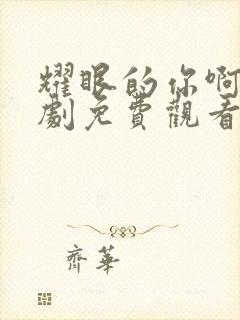 耀眼的你啊
劇免費觀看
齊華